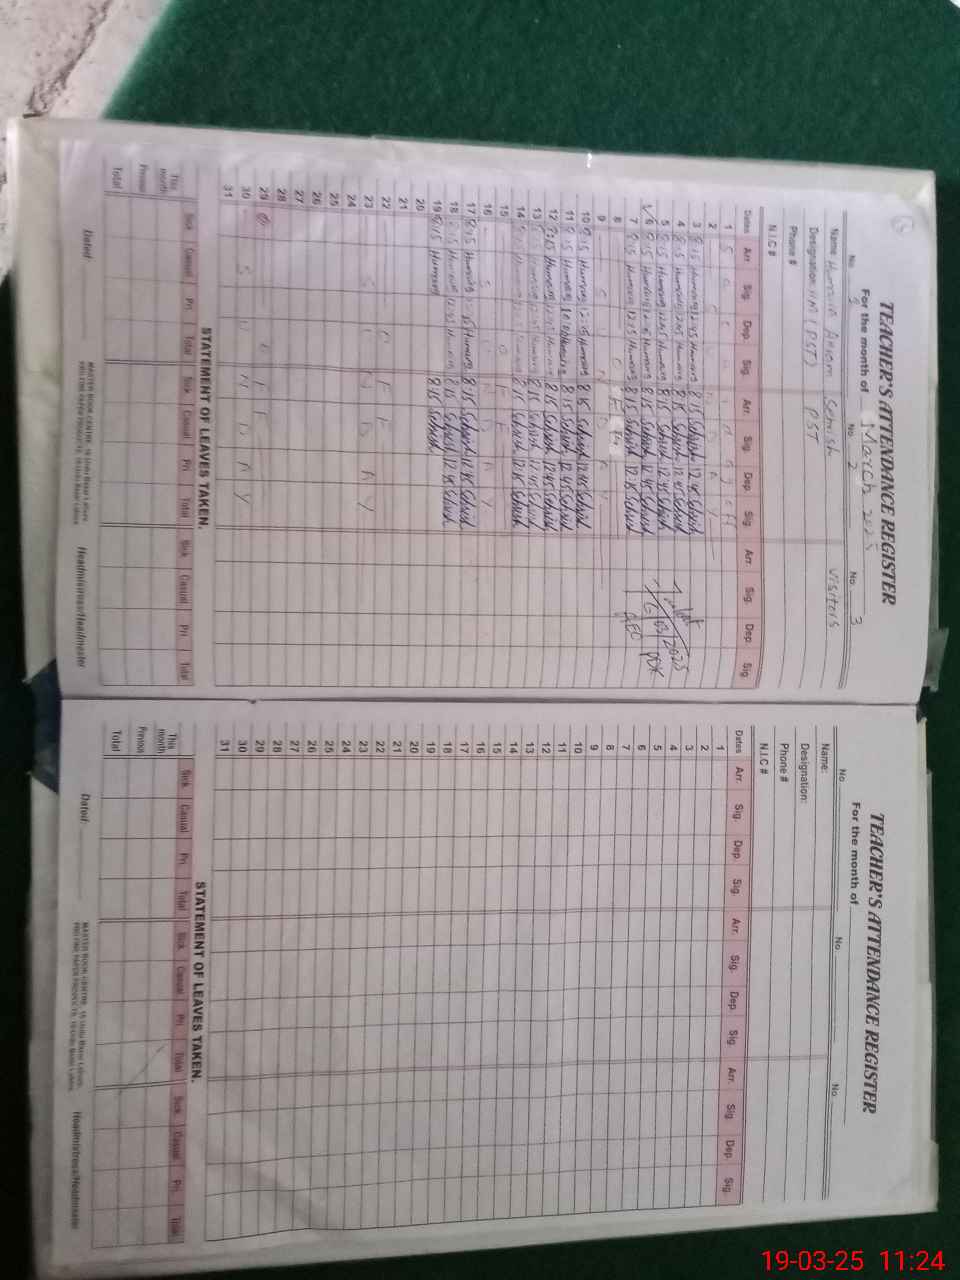 TEACHER'S ATTENDANCE REGISTER
For the month of March 2025
No. 1 No. 2 No. 3
Name Humaira Anjom Sehrish Visitors
Designation: HM (PST) PST
Phone #
N.I.C #
Dates Arr. Sig. Dep. Sig. Arr. Sig. Dep. Sig. Arr. Sig. Dep. Sig.
1
2 S U N D A Y
3 8:15 Humaira 12:45 Humaira 8:15 Sehrish 12:45 Sehrish
4 8:15 Humaira 12:45 Humaira 8:15 Sehrish 12:45 Sehrish
5 8:15 Humaira 12:45 Humaira 8:15 Sehrish 12:45 Sehrish
6 8:15 Humaira 12:45 Humaira 8:15 Sehrish 12:45 Sehrish 6/03/2025
7 8:15 Humaira 12:15 Humaira 8:15 Sehrish 12:15 Sehrish AEO
8 O F F
9 S U N D A Y
10 8:15 Humaira 12:45 Humaira 8:15 Sehrish 12:45 Sehrish
11 8:15 Humaira Humaira 8:15 Sehrish 12:45 Sehrish
12 8:15 Humaira 12:45 Humaira 8:15 Sehrish 12:45 Sehrish
13 8:15 Humaira 12:45 Humaira 8:15 Sehrish 12:45 Sehrish
14 8:15 Humaira Humaira 8:15 Sehrish Sehrish
15 O F F
16 S U N D A Y
17 8:15 Humaira Humaira 8:15 Sehrish 12:45 Sehrish
18 8:15 Humaira 12:45 Humaira 8:15 Sehrish 12:45 Sehrish
19 8:15 Humaira 8:15 Sehrish
20
21
22 O F F
23 S U N D A Y
24
25
26
27
28
29 O F F
30 S U N D A Y
31
STATEMENT OF LEAVES TAKEN.
Sick Casual Pri. Total Sick Casual Pri. Total Sick Casual Pri. Total
This month
Previous
Total
Dated
MASTER BOOK CENTRE
Headmistress/Headmaster
TEACHER'S ATTENDANCE REGISTER
For the month of
No No No
Name:
Designation:
Phone #
N.I.C #
Dates Arr. Sig. Dep. Sig. Arr. Sig. Dep. Sig. Arr. Sig. Dep. Sig.
1
2
3
4
5
6
7
8
9
10
11
12
13
14
15
16
17
18
19
20
21
22
23
24
25
26
27
28
29
30
31
STATEMENT OF LEAVES TAKEN.
Sick Casual Pri. Total Sick Casual Pri. Total Sick Casual Pri. Total
This month
Previous
Total
Dated
MASTER BOOK CENTRE
Headmistress/Headmaster
19-03-25 11:24